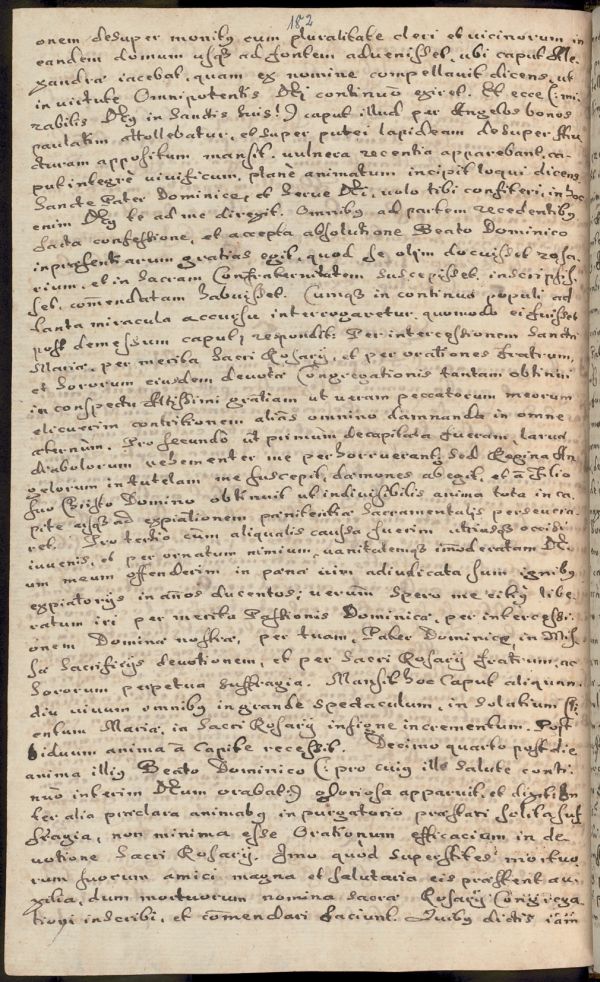 182
onem desuper monitus cum pluralitate cleri et vicinorum in
eandem domum usq3 ad fontem advenisset, ubi caput Ale-
xandræ iacebat, quam ex nomine compellavit dicens, ut
in virtute Omnipotentis Dei continuo exiret. Et ecce (: mi-
rabilis Deus in Sanctis suis! :) caput illud per Angelos bonos
paulatim attollebatur, et super putei lapideam desuper stru-
cturam appositum mansit. vulnera recentia apparebant, ca-
put integrè vivificum, planè animatum incipit loqui dicens
Sancte Pater Dominice, et Serve Dei, volo tibi confiteri, in hoc
enim Deus te ad me direxit. Omnibus ad partem recedentibus
facta confessione, et accepta absolutione Beato Dominico
in præsenti arum gratias egit, quod se olim docuisset rosa-
rium, et in Sacram Confraternitatem suscepisset, inscripsis-
set, com̄endatam habuisset. Cumq3 in continuo populi ad
tanta miracula accursu interrogaretur, quomodo ei fuisset
post demessum caput; respondit: Per intercessionem Sanctæ
Mariæ, per merita Sacri Rosarij, et per orationes fratrum,
et Sororum eiusdem devotæ Congregationis tantam obtinui
in conspectu Altissimi gratiam ut veram peccatorum meorum
elicuerim contritionem aliàs omnino damnanda in omne
æternùm. Pro secundò ut primum decapitata fueram, larvæ
diabolorum vehementer me perhorruerant; sed Regina An-
gelorum in tutelam me suscepit, dæmones abegit, et à Filio
suo Christo Domino obtinuit ut indivisibilis anima tota in ca-
pite usq3 ad expiationem pænitentiæ Sacramentalis persevera-
ret. Pro tertio cùm aliqualis caussa fuerim utriusq3 occisi
iuvenis, et per ornatum nimium, vanitatemq3 im̄oderatam De-
um meum offenderim in pænâ vivi adiudicata sum ignibus
expiatorijs in años ducentos; verùm spero me citius libe-
ratum iri per merita Passionis Dominicæ, per intercessi-
onem Dominæ nostræ, per tuam, Pater Dominice, in Mis-
sæ Sacrificijs devotionem, et per Sacri Rosarij fratrum, ac
Sororum perpetua suffragia. Mansit hoc Caput aliquan-
diu vivum omnibus in grande spectaculum, in solatium sti-
entum Mariæ, in Sacri Rosarij insigne incrementum. Post
biduum anima à Capite recessit. Decimo quarto post die
anima illius Beato Dominico (: pro cuius ille salute conti-
nuò interim Deum orabat :) gloriosa apparuit, et dixit: In-
ter alia præclara animabus in purgatorio præstari solita suf-
fragia, non minima esse Orationum efficacium in de-
votione Sacri Rosarij. Imo quòd superstites mortuo-
rum suorum amici magna et salutaria eis præstent au-
xilia, dum mortuorum nomina sacræ Rosarij Congrega-
tioni inscribi, et com̄endari faciunt. Quibus dictis iam